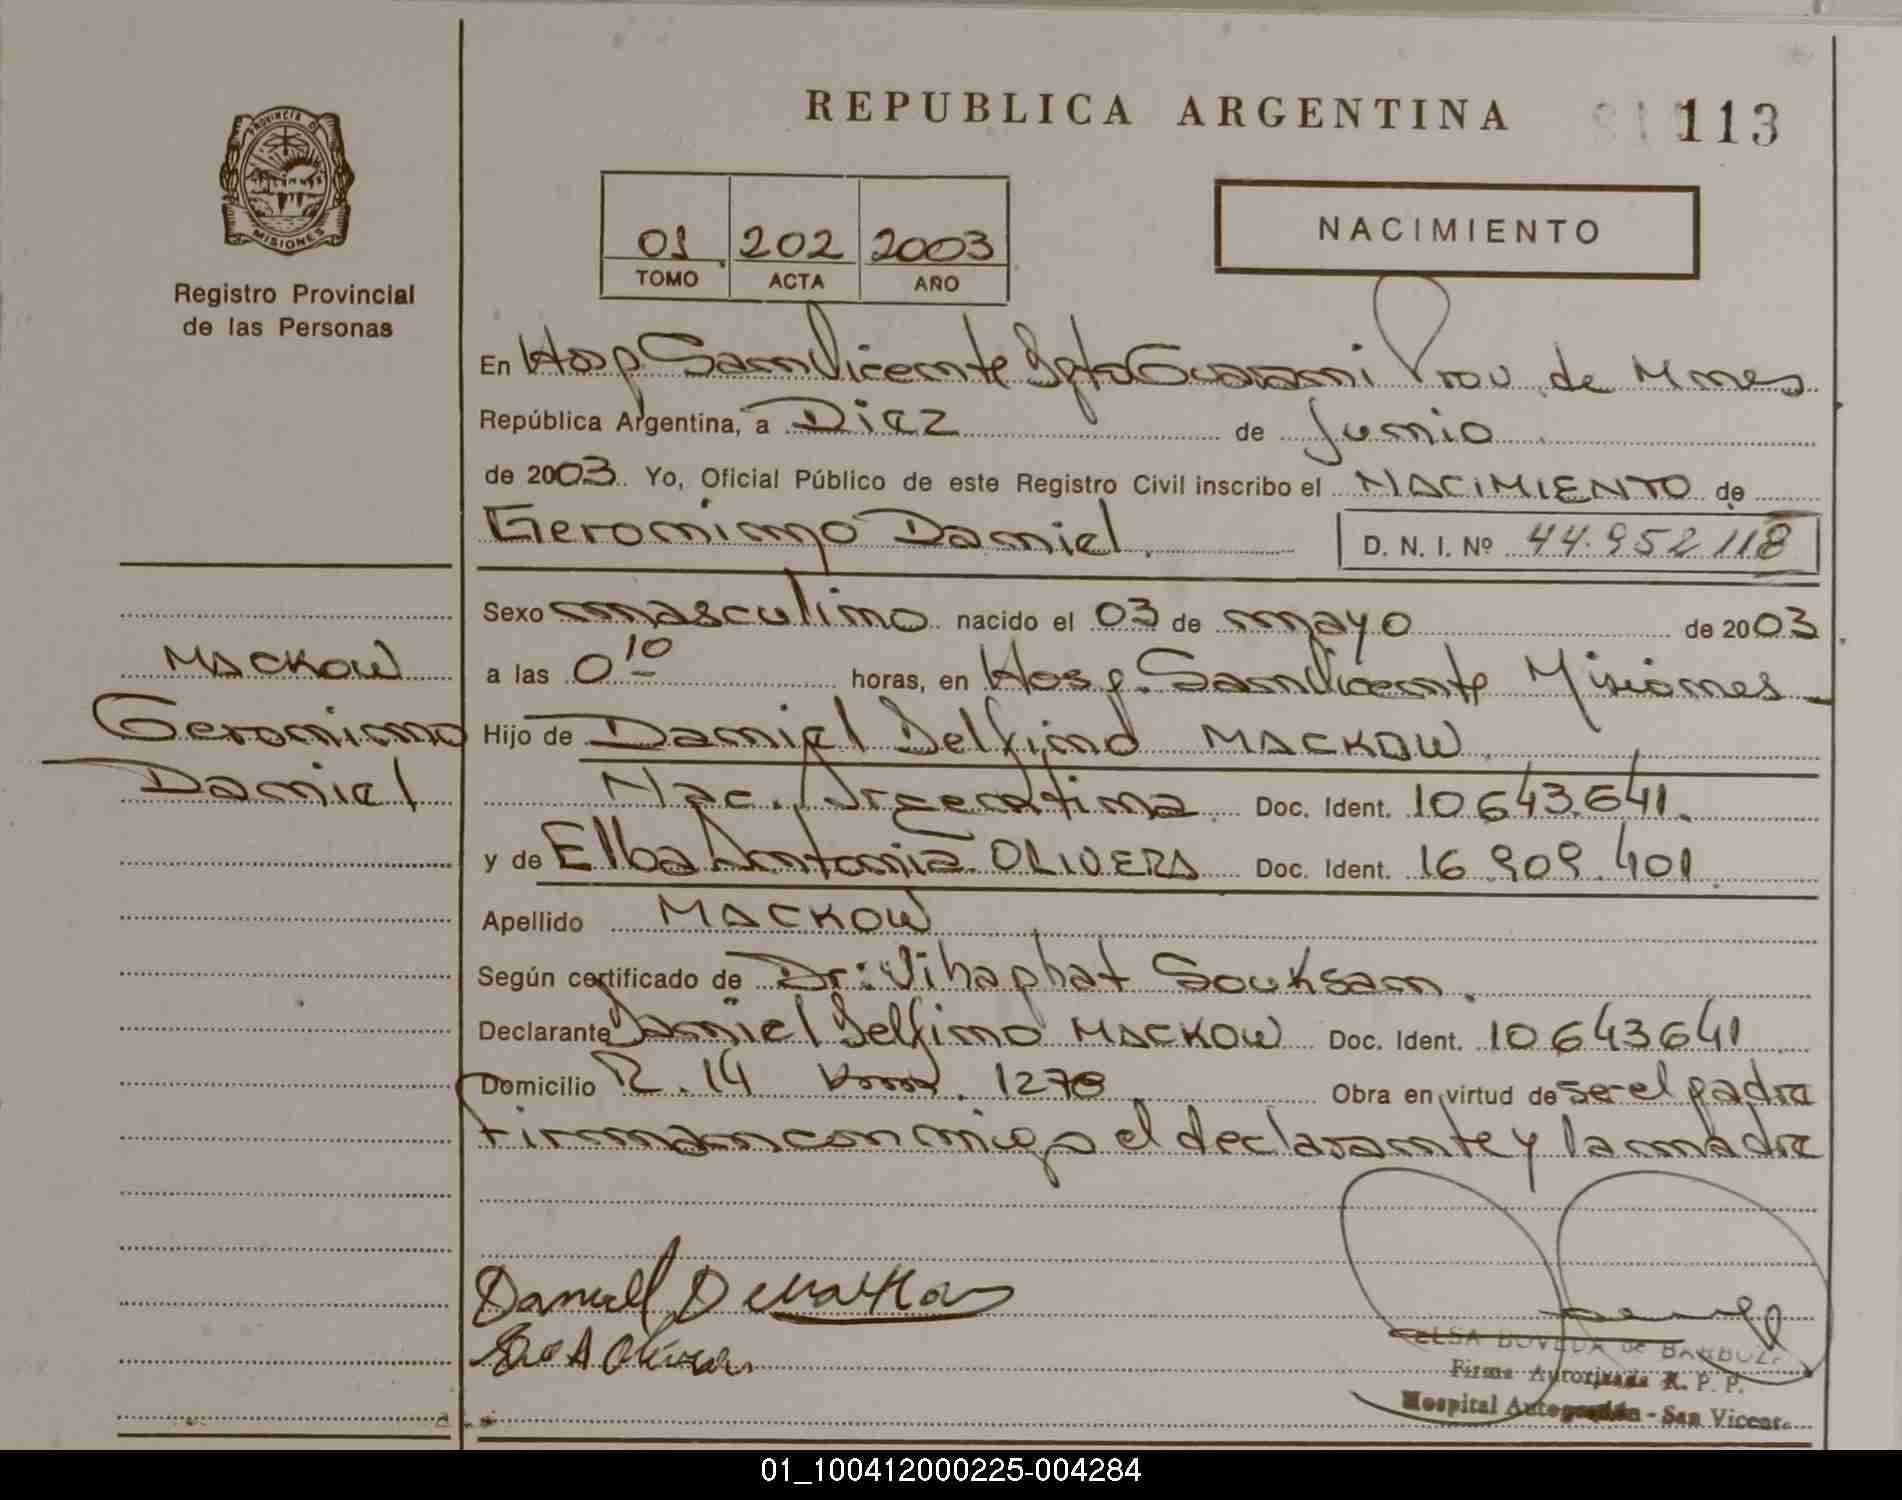 REPUBLICA ARGENTINA
113
PROVINCIA DE
MISIONES
Registro Provincial
de las Personas
01 202 2003
TOMO ACTA AÑO
NACIMIENTO
En Hosp San Vicente Dpto Guarani Prov. de Mnes
República Argentina, a Diez de Junio
de 2003. Yo, Oficial Público de este Registro Civil inscribo el NACIMIENTO de
Geronimo Daniel D. N. I. Nº 44.952118
Sexo masculino nacido el 03 de mayo de 2003
a las 0 10 horas, en Hosp. San Vicente Misiones
Hijo de Daniel Delfino MACKOW
Nac. Argentina Doc. Ident. 10643.641.
y de Elba Antonia OLIVERA Doc. Ident. 16.909.401
Apellido MACKOW
Según certificado de Dr: Vihaphat Souksam.
Declarante Daniel Delfino MACKOW Doc. Ident. 10643641
Domicilio R. 14 Km. 1278 Obra en virtud de ser el padre
firman conmigo el declarante y la madre
MACKOW
Geronimo
Daniel
Daniel D
A Olivera
ELSA BOVEDA de BARBOZA
Firma Autorizada R. P. P.
Hospital Autogestión - San Vicente
01_100412000225-004284